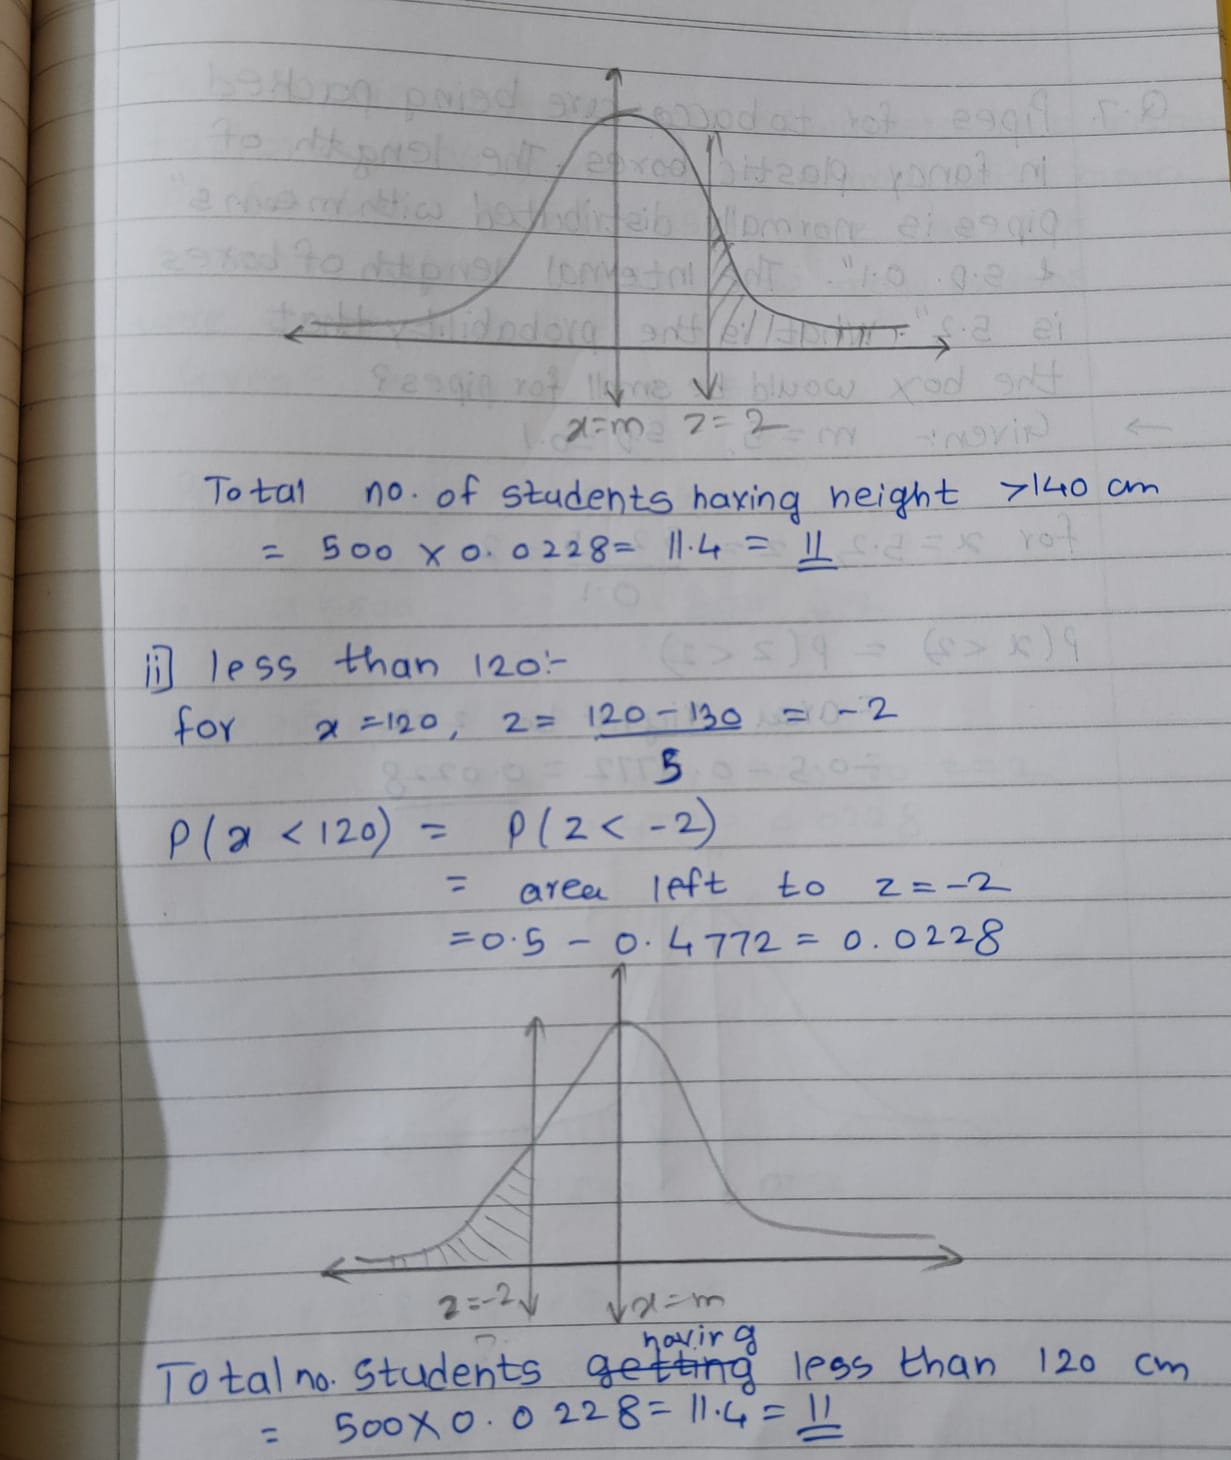 x=m z=2
Total no. of students having height >140 cm
= 500 x 0.0228= 11.4 = 11
ii] less than 120:-
for x=120, z= 120-130 = -2
5
P(x <120) = P(z< -2)
= area left to z=-2
=0.5 - 0.4772 = 0.0228
z=-2 x=m
having
Total no. students getting less than 120 cm
= 500X0.0228= 11.4 = 11